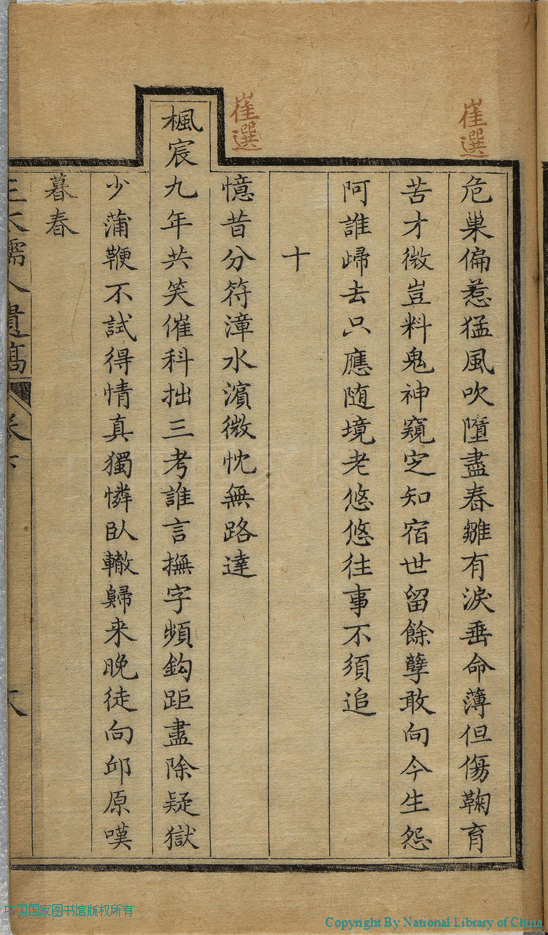 崔選
危巢偏惹猛風吹墮盡春雛有淚垂命薄但傷鞠育
苦才微豈料鬼神窺定知宿世留餘孽敢向今生怨
阿誰歸去只應随境老悠悠往事不須追
十
崔選
憶昔分符漳水濱微忱無路達
楓宸九年共笑催科拙三考誰言撫字頻鈎距盡除疑獄
少蒲鞭不試得情真獨憐臥轍歸来晚徒向邱原嘆
暮春
遺稿 卷下
六
中国国家图书馆版权所有
Copyright By National Library of China